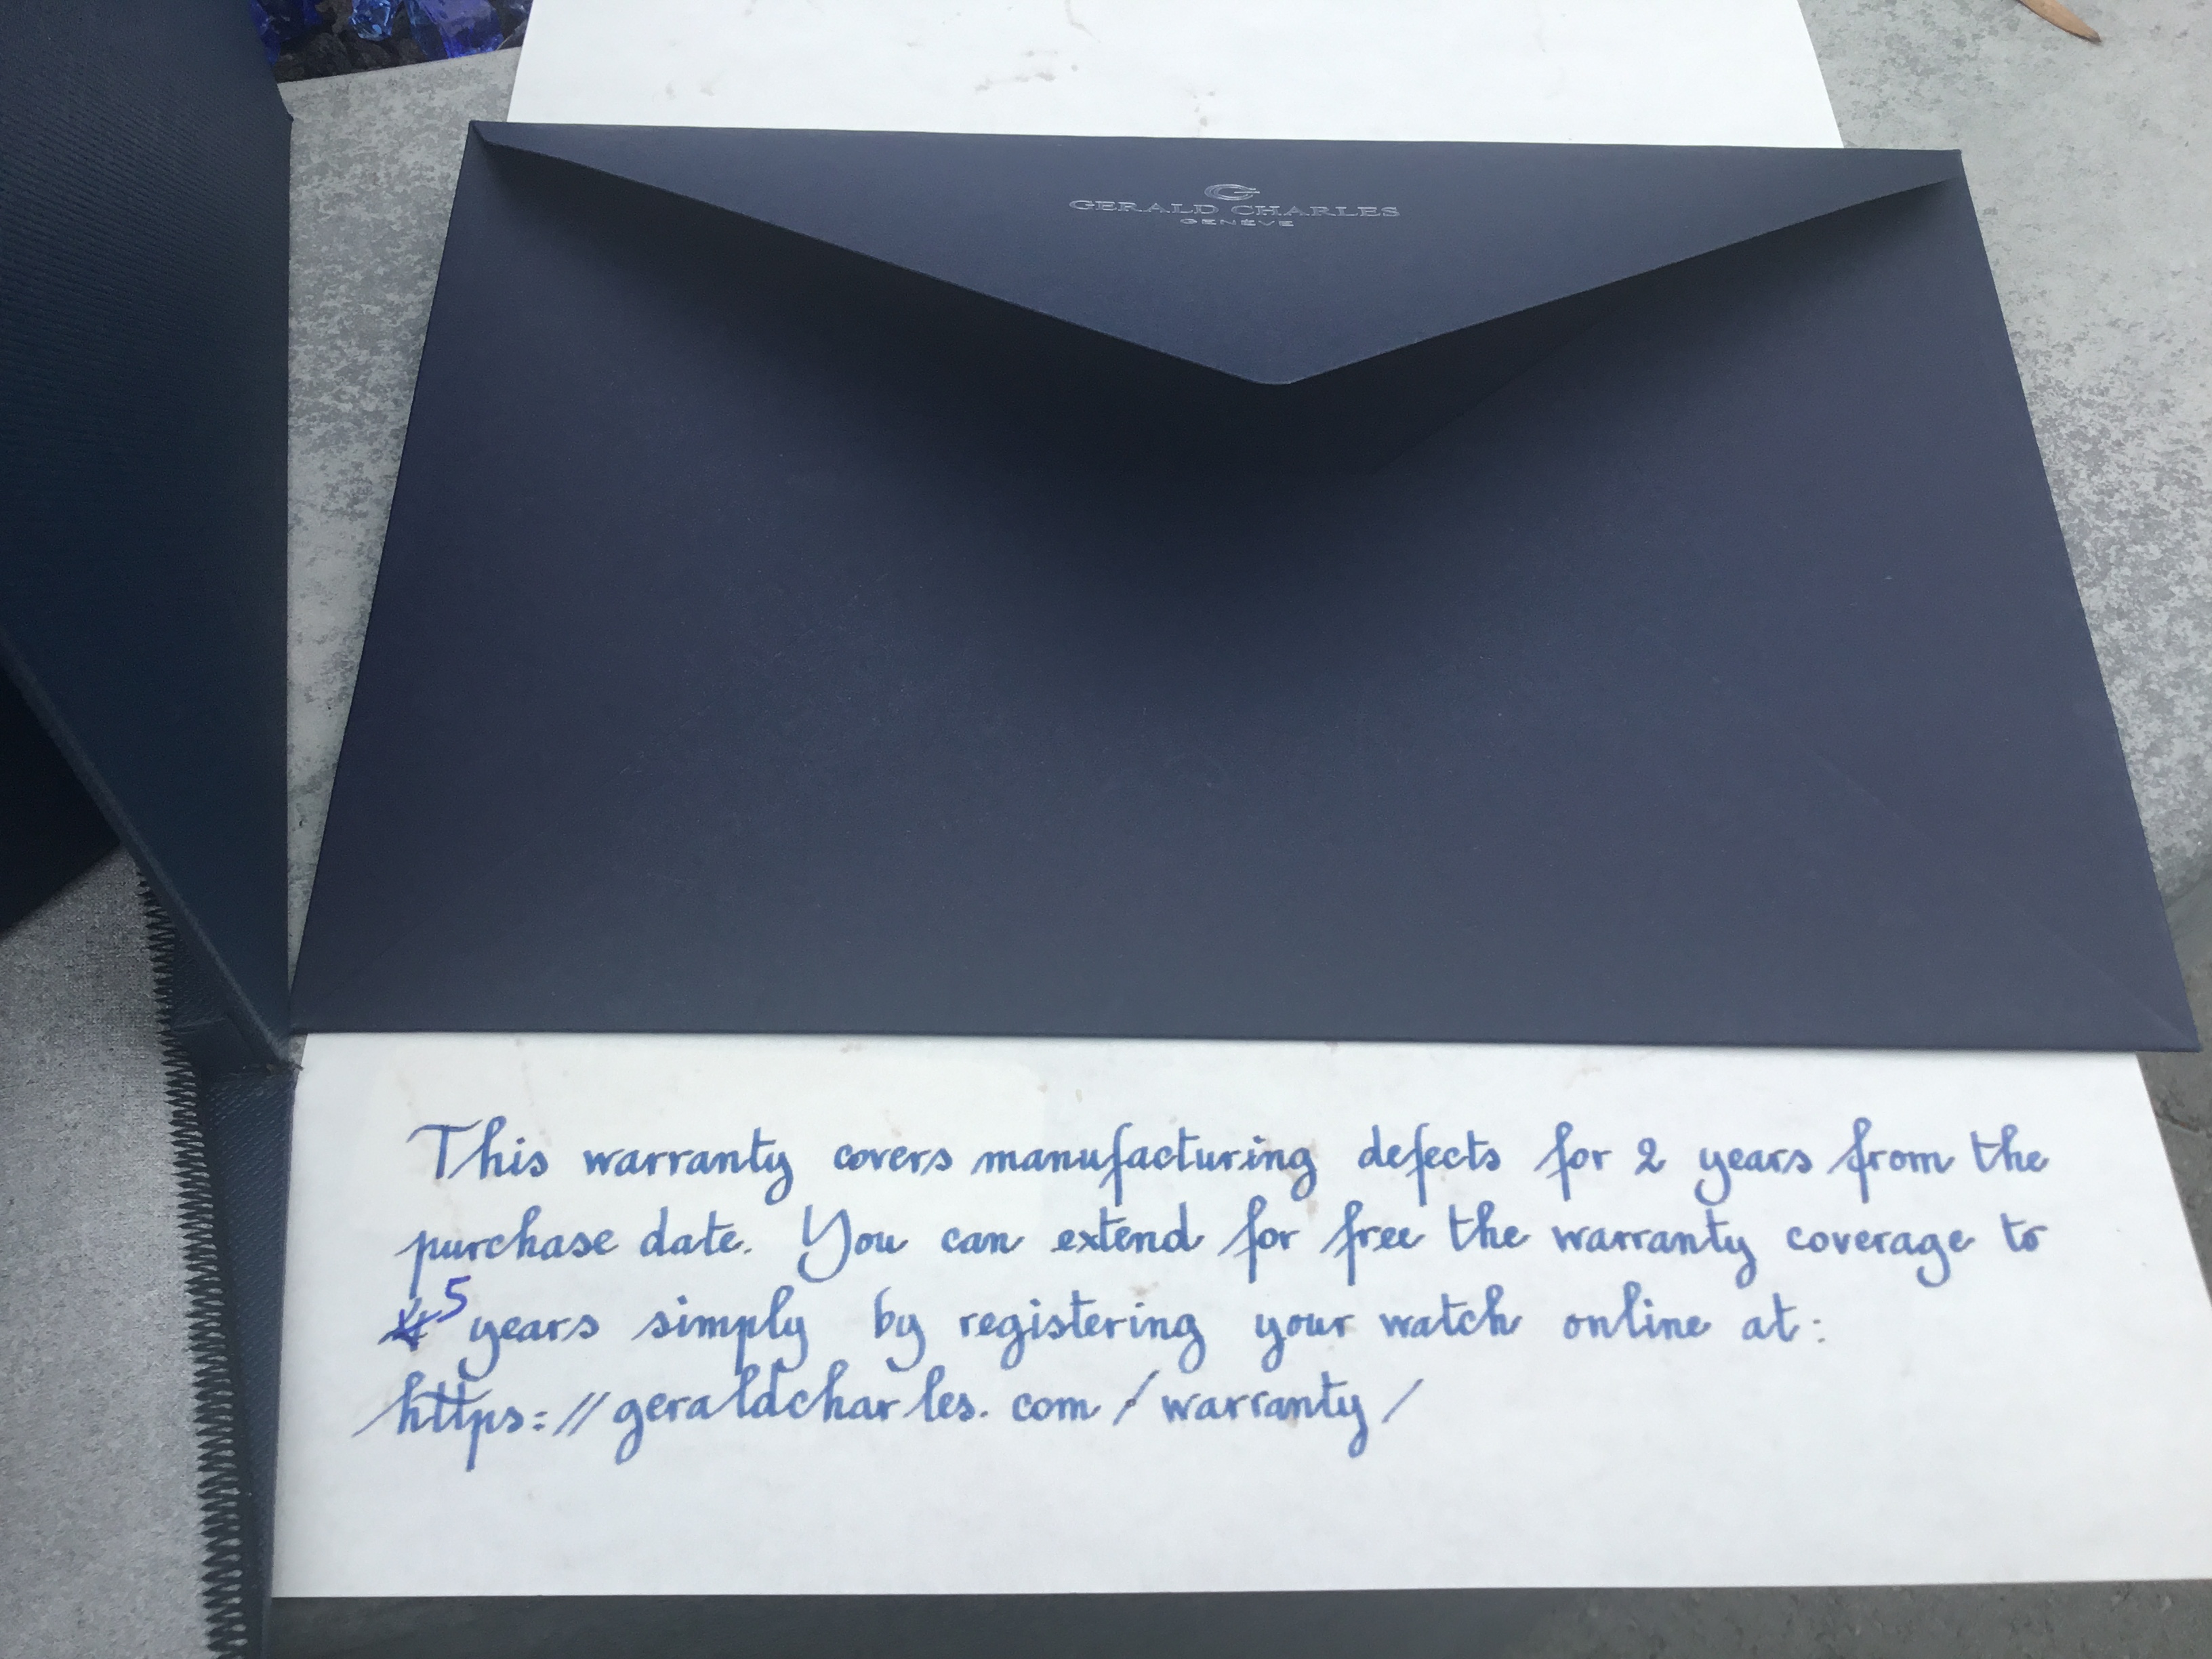 GERALD CHARLES
GENÈVE
This warranty covers manufacturing defects for 2 years from the
purchase date. You can extend for free the warranty coverage to
5 years simply by registering your watch online at:
https://geraldcharles.com/warranty/